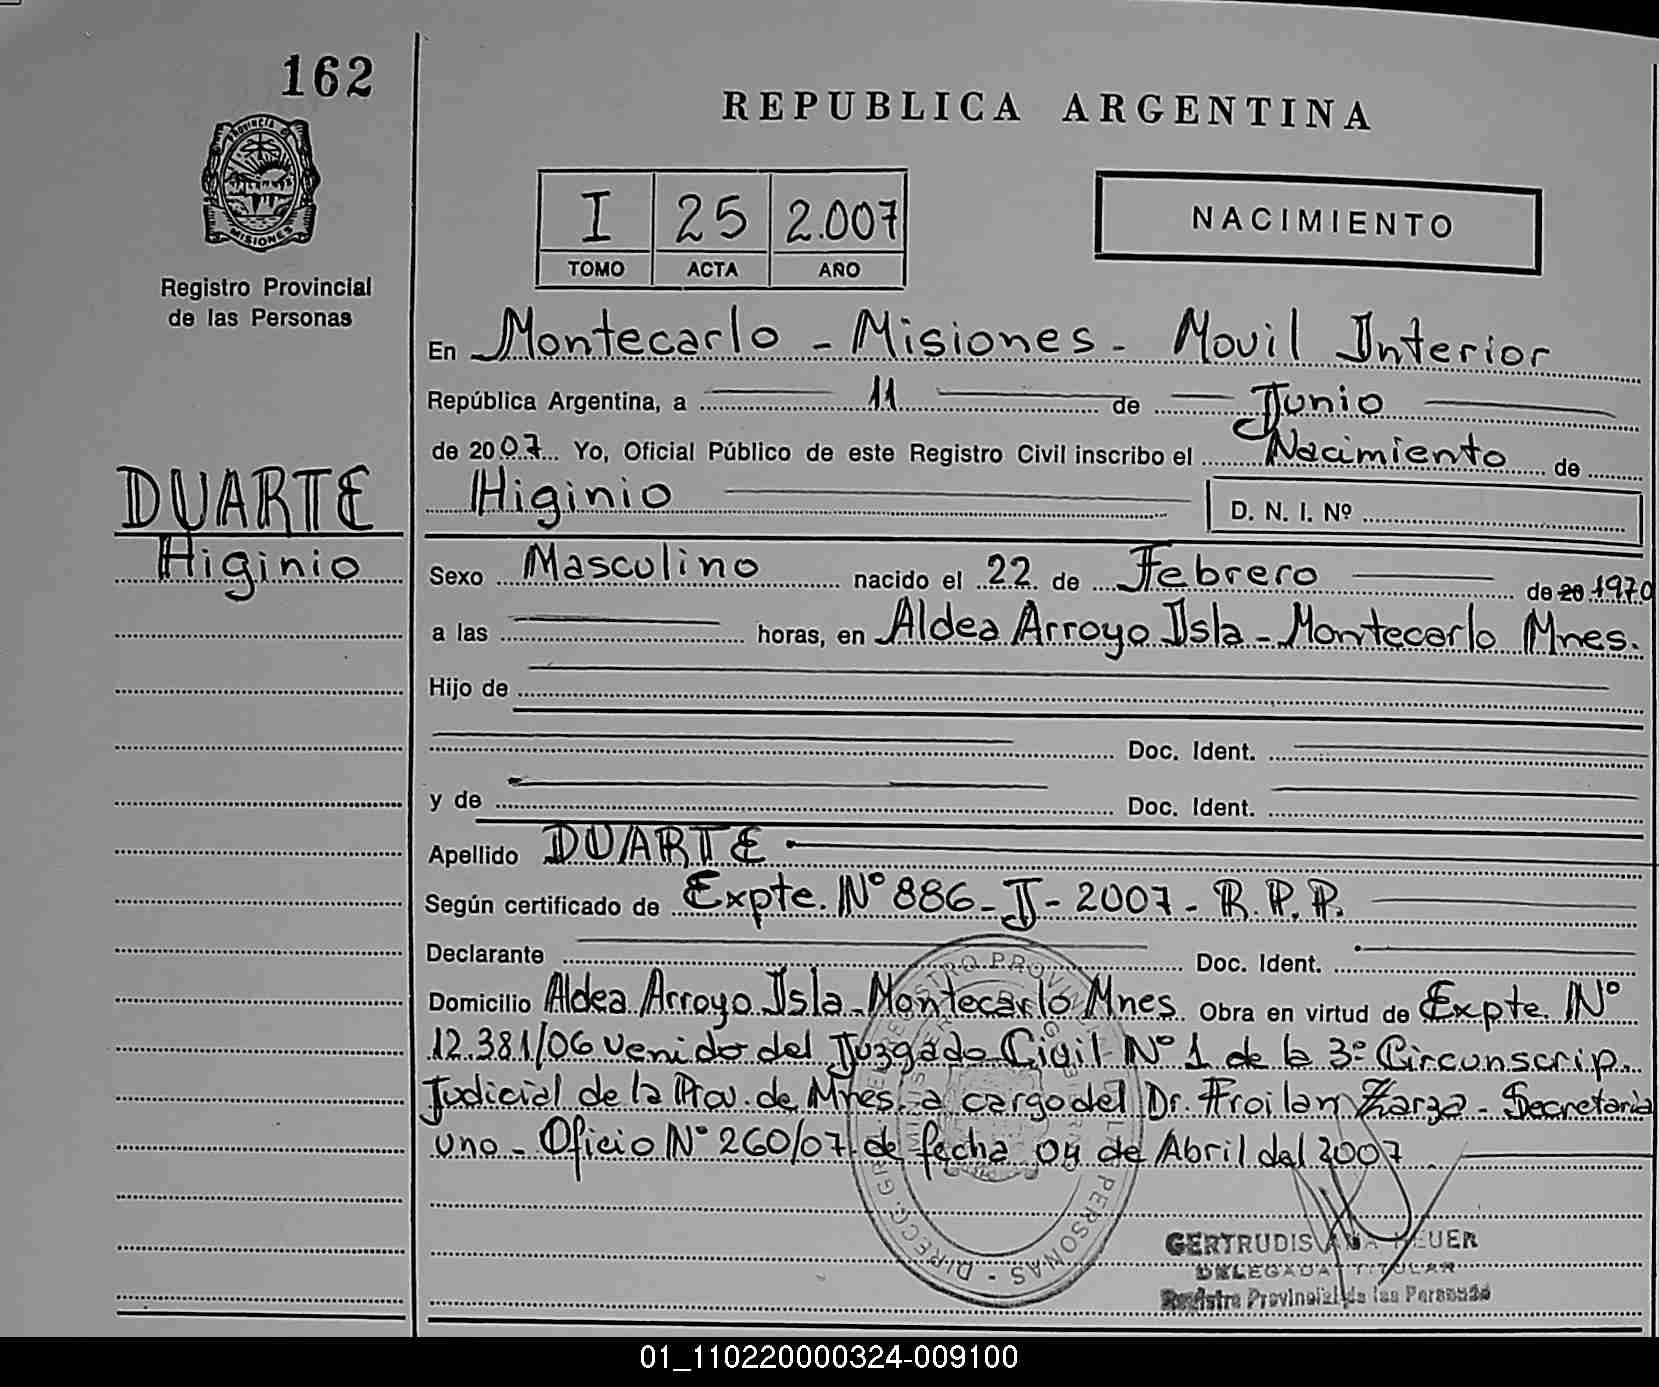 162
REPUBLICA ARGENTINA
PROVINCIA DE
MISIONES
I 25 2.007
TOMO ACTA AÑO
NACIMIENTO
Registro Provincial
de las Personas
En Montecarlo - Misiones - Movil Interior
República Argentina, a 11 de Junio
de 2007 Yo, Oficial Público de este Registro Civil inscribo el Nacimiento de
Higinio D. N. I. Nº
DUARTE
Higinio
Sexo Masculino nacido el 22 de Febrero de 20 1970
a las horas, en Aldea Arroyo Isla - Montecarlo Mnes.
Hijo de
Doc. Ident.
y de Doc. Ident.
Apellido DUARTE
Según certificado de Expte. Nº 886 - J - 2007 - R.P.P.
Declarante Doc. Ident.
Domicilio Aldea Arroyo Isla - Montecarlo Mnes. Obra en virtud de Expte. Nº
12.381/06 venido del Juzgado Civil Nº 1 de la 3º Circunscrip.
Judicial de la Prov. de Mnes. a cargo del Dr. Froilan Zarza - Secretaria
uno - Oficio Nº 260/07 de fecha 04 de Abril del 2007
GERTRUDIS ANA HEUER
DELEGADA TITULAR
Registro Provincial de las Personas
01_110220000324-009100